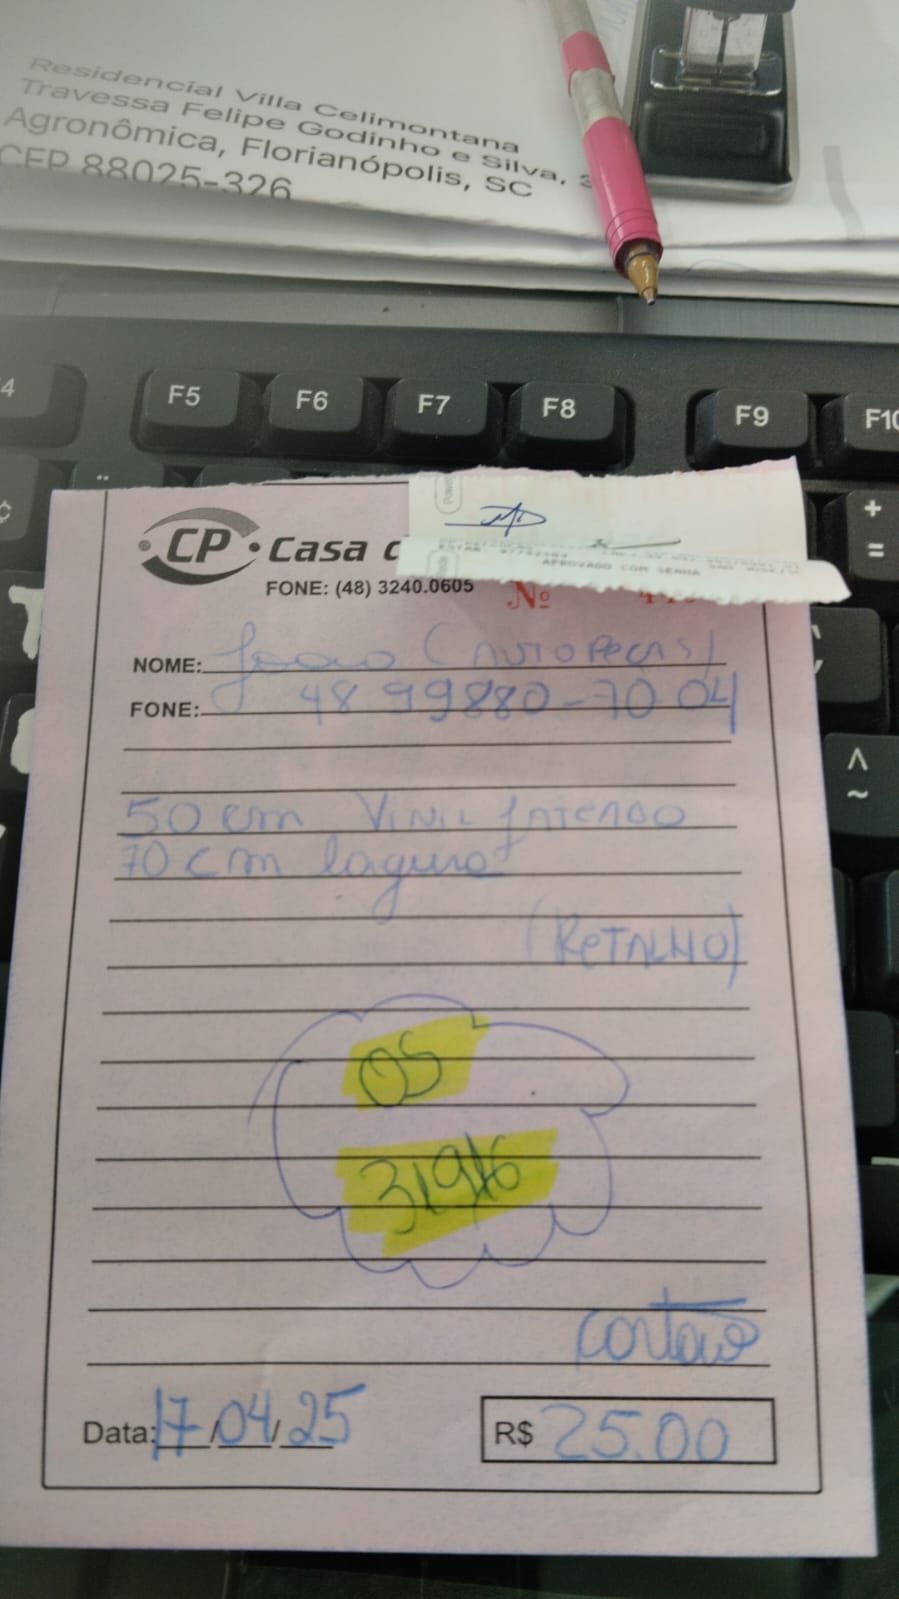 Residencial Villa Celimontana
Travessa Felipe Godinho e Silva, 3
Agronômica, Florianópolis, SC
CEP 88025-326
F5 F6 F7 F8 F9 F10
+
=
^
~
CP Casa
APROVADO COM SENHA
FONE: (48) 3240.0605
Nº
NOME: João (AUTO PEÇAS)
FONE: 48 99880-7004
50 cm VINIL
70 cm largura
(RETALHO)
OS
31916
cartão
Data: 17/04/25
R$ 25.00